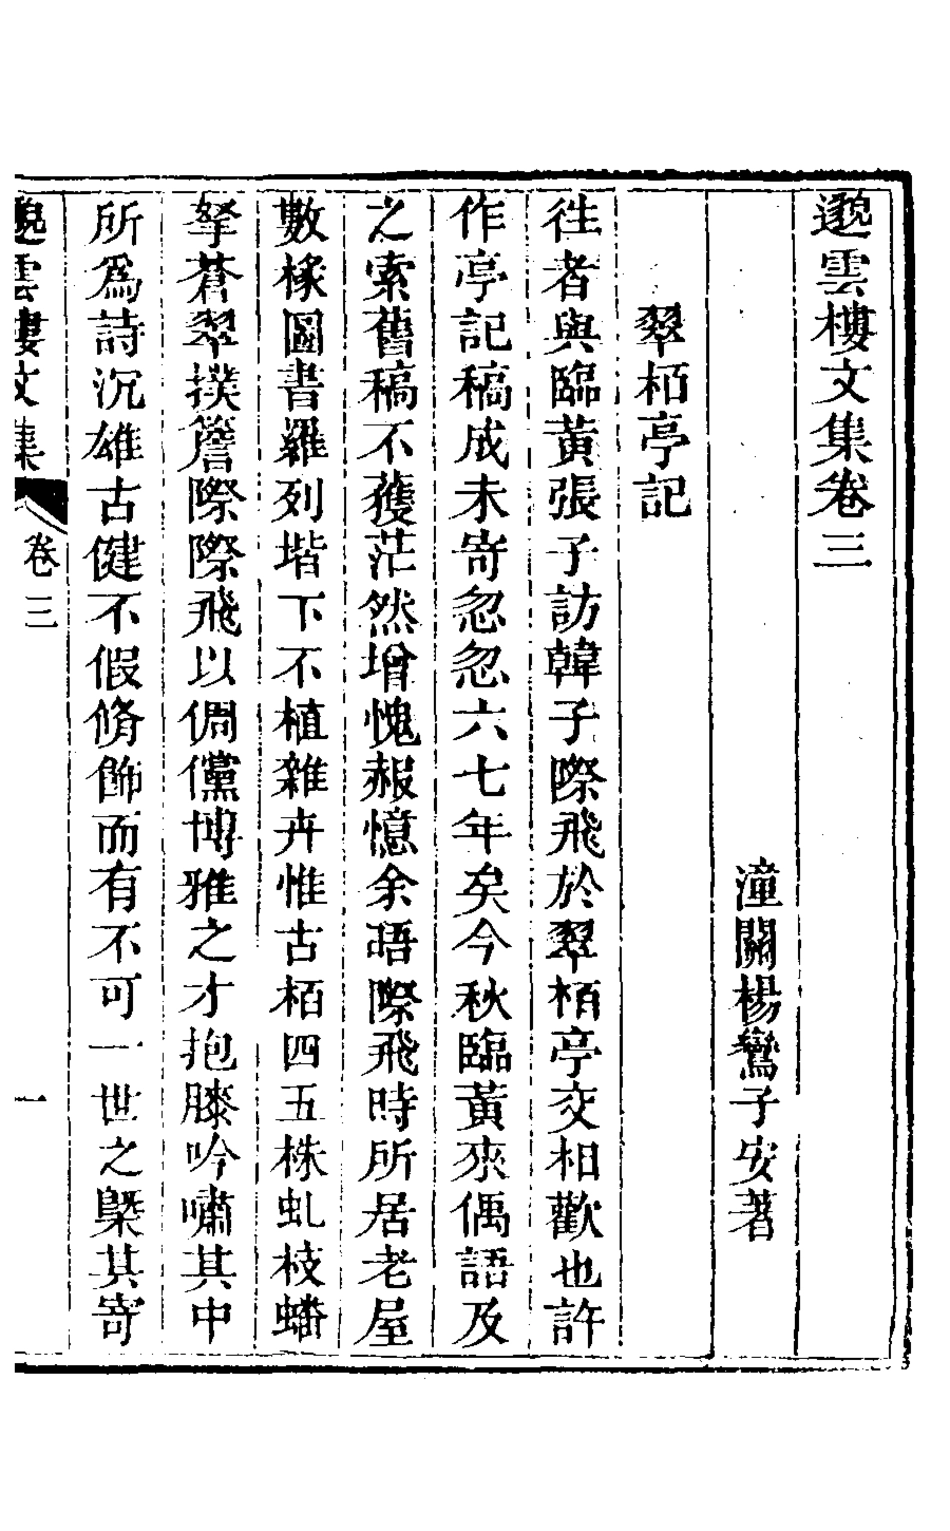 邈雲樓文集卷三
潼關楊鸞子安著
翠栢亭記
徃者與臨黃張子訪韓子際飛於翠栢亭交相歡也許
作亭記稿成未寄忽忽六七年矣今秋臨黃來偶語及
之索舊稿不獲茫然增愧赧憶余晤際飛時所居老屋
數椽圖書羅列堦下不植雜卉惟古栢四五株虬枝蟠
拏蒼翠撲簷際際飛以倜儻博雅之才抱膝吟嘯其中
所爲詩沉雄古健不假脩飾而有不可一世之槩其寄
邈雲樓文集 卷三 一